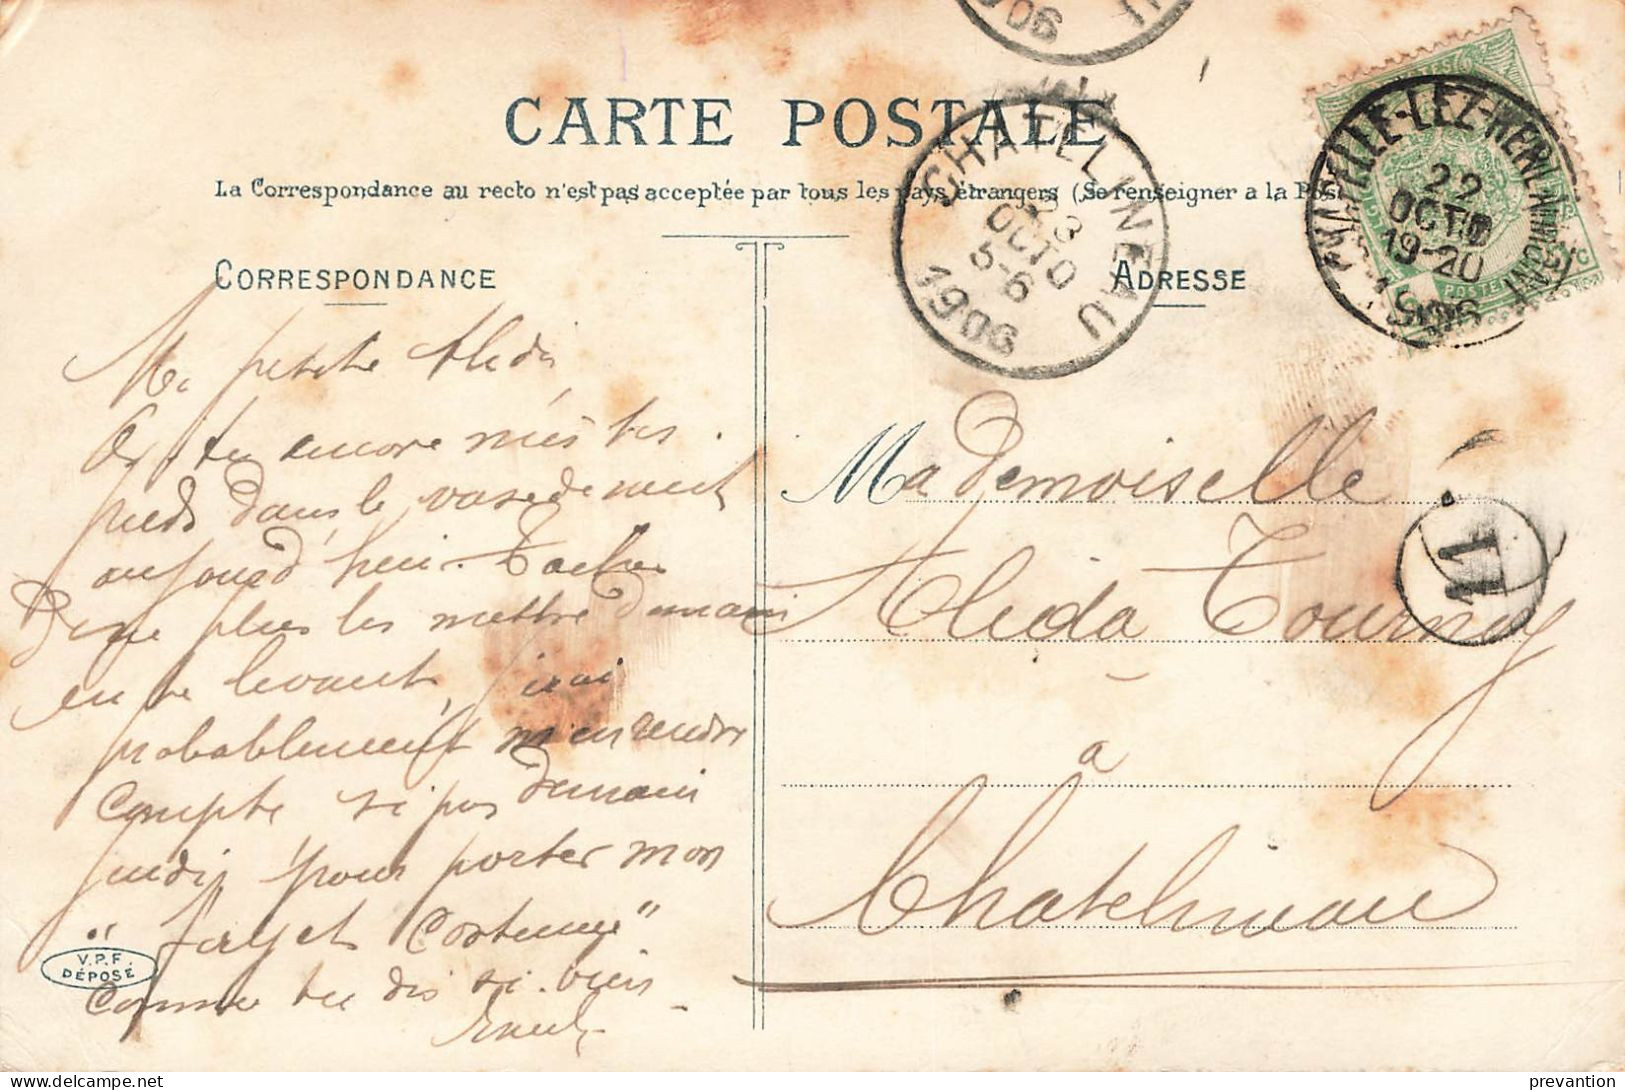 1906
CARTE POSTALE
La Correspondance au recto n'est pas acceptée par tous les pays étrangers (Se renseigner a la Pos
CHATELINEAU
23
OCTO
5-6
1906
CHAPELLE-LEZ-HERLAIMONT
22
OCTO
19-20
1906
POSTE
CORRESPONDANCE
Ma petite Alida
As tu encore mis tes
pieds dans le vase de nuit
aujourd'hui. Taches
De ne plus les mettre demain
en te levant, j'irai
probablement m'en rendre
compte si pas demain
jeudi pour porter mon
" Costume"
Comme tu dis si. viens
V.P.F.
DÉPOSÉ
ADRESSE
Mademoiselle
Alida Tournay
à
Chatelineau
11
prevantion